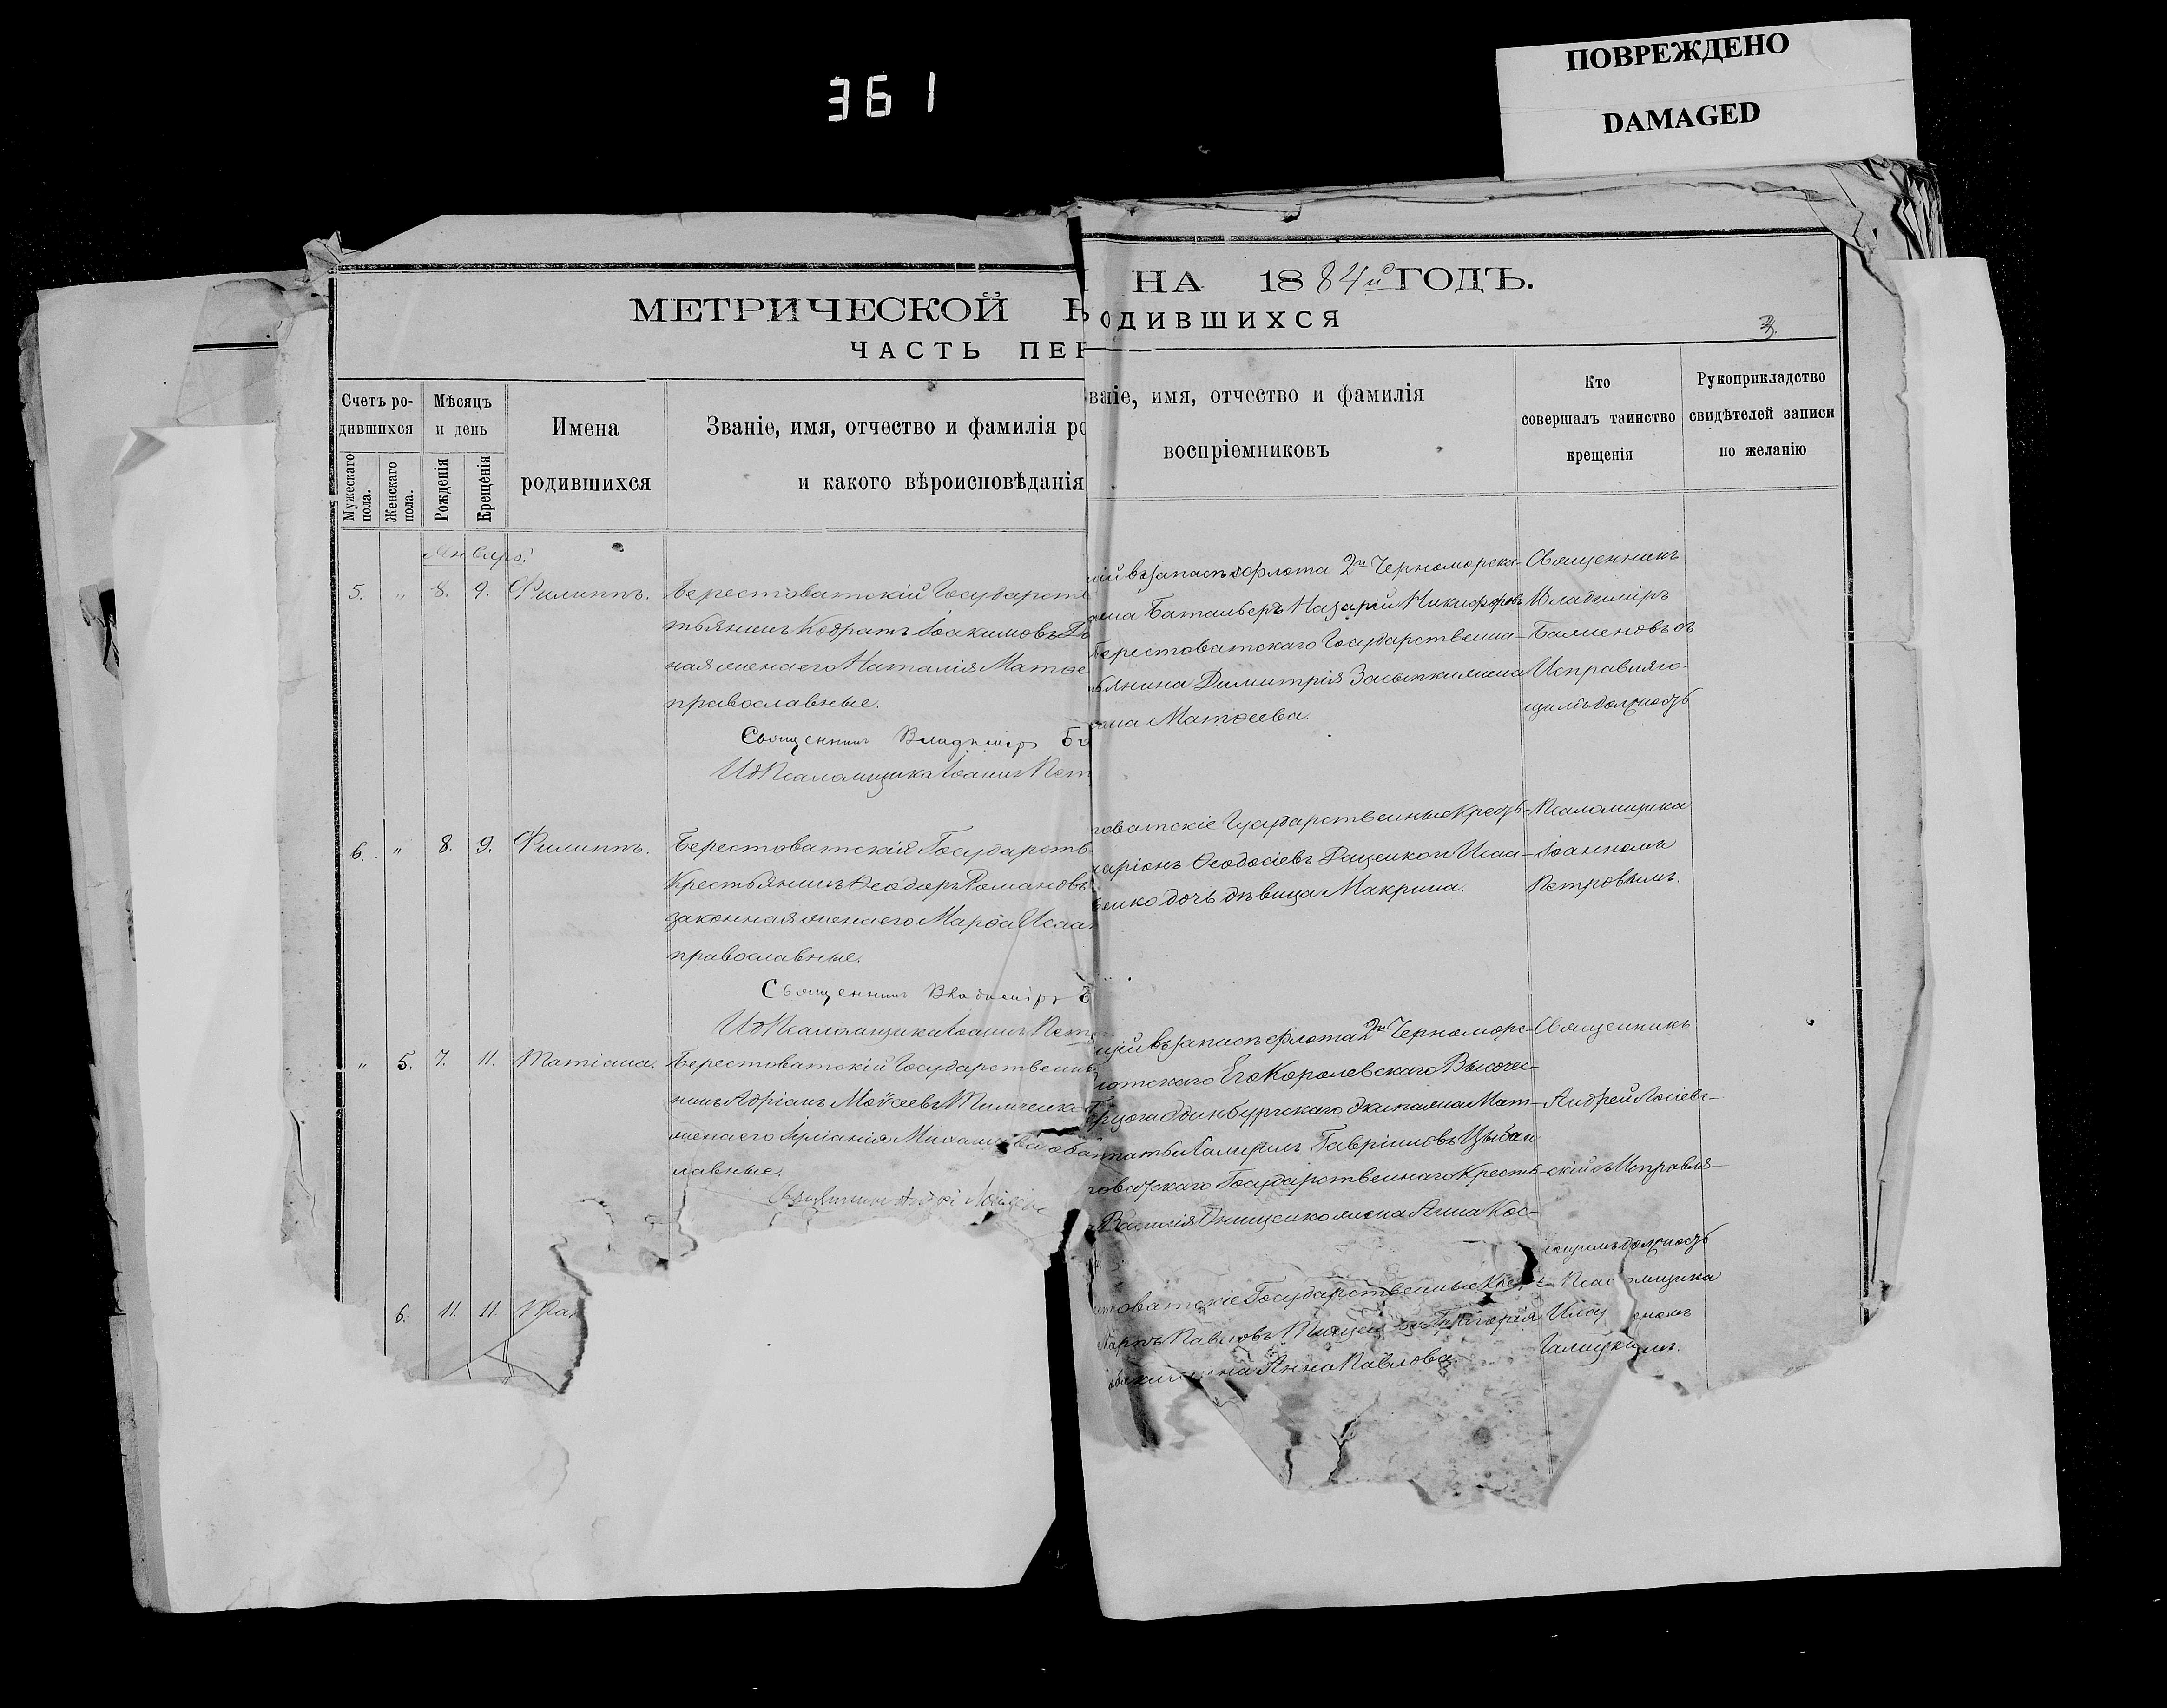 361
ПОВРЕЖДЕНО
DAMAGED
МЕТРИЧЕСКОЙ
ЧАСТЬ ПЕР
НА 1884й ГОДЪ.
ОДИВШИХСЯ
3.
Счетъ ро-
дившихся
Мужескаго
пола.
Женскаго
пола.
Мѣсяцъ
и день
Рожденія
Крещенія
Имена
родившихся
Званіе, имя, отчество и фамилія ро
и какого вѣроисповѣданія
ваніе, имя, отчество и фамилія
воспріемниковъ
Кто
совершалъ таинство
крещенія
Рукоприкладство
свидѣтелей записи
по желанію
Январь.
5. " 8. 9. Филиппъ. Берестоватскій Государств
тьянинъ Кодратъ Іоакимовъ
ная жена его Наталія Матѳе
православные.
Священникъ Владиміръ Ба
ИдПсаломщика Іоаннъ Пет
въ запасъ флота 2го Черноморска-
Баталберъ Назарій Никифоровъ
Берестоватскаго Государственна-
ьянина Димитрія Засыпки жена
Матѳеева.
Священникъ
Владиміръ
Баженовъ съ
Исправляю-
щимъ должность
6. " 8. 9. Филиппъ. Берестоватскій Государств
Крестьянинъ Ѳеодоръ Романовъ
законная жена его Марѳа Исаа
православные.
Священникъ Владиміръ Б
ИдПсаломщика Іоаннъ Пет
товатскіе Государственные Кресть-
ларіонъ Ѳеодосіевъ Даценко и Исаа-
енко дочь дѣвица Макрина.
Псаломщика
Іоанномъ
Петровымъ.
" 5. 7. 11. Татіана. Берестоватскій Государственны
нинъ Адріанъ Моѵсеевъ
жена его Іуліанія
лавные.
щій въ запасъ флота 2го Черноморс-
лотскаго Его Королевскаго Высочес-
ерцога Эдинбургскаго экипажа Мат-
Гавріиловъ
товатскаго Государственнаго Кресть-
Василія Онищенко жена Анна Кос-
Священникъ
Андрей Лосіевс-
кій съ Исправля-
ющимъ должность
6. 11. 11. Тат
товатскіе Государственные
Карпъ Павловъ Григорія
жена Анна Павлова.
Псаломщика
Галицкимъ.